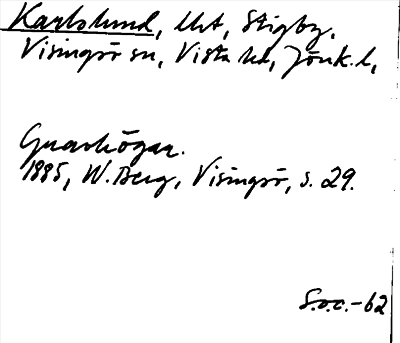 Karlslund, Uht, Stigby,
Visingsö sn, Vista hd, Jönk. l,
Gravhögar.
1885, W. Berg, Visingsö, s. 29.
S.o.c.-62